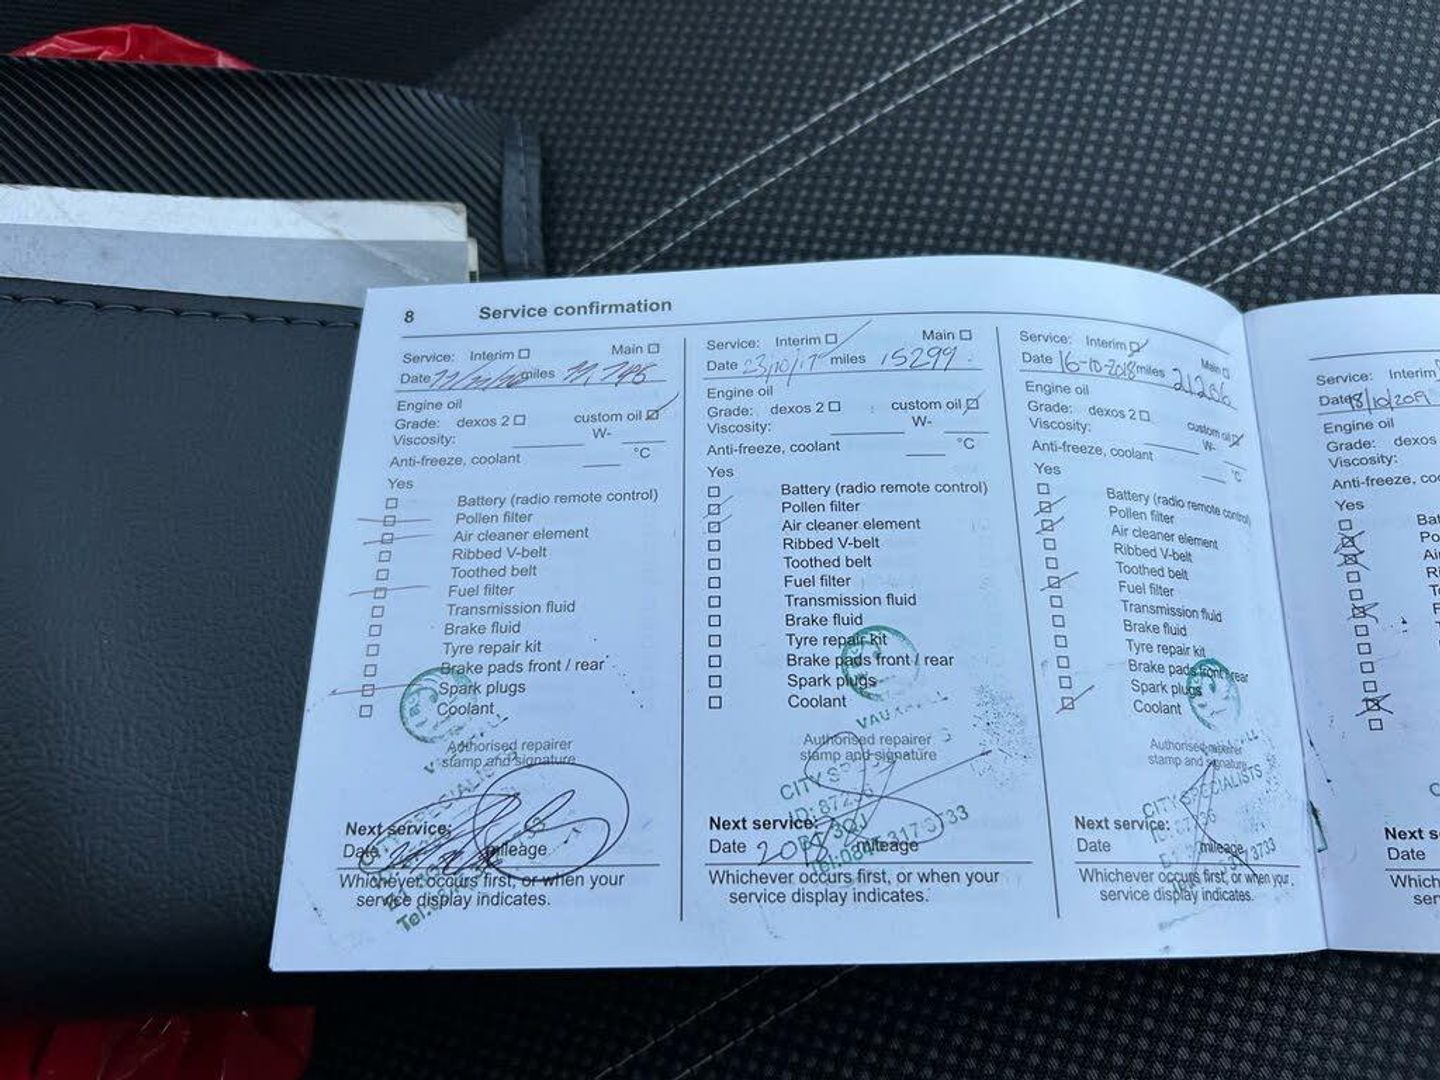 8 Service confirmation
Service: Interim Main
Date miles 11,748
Engine oil
Grade: dexos 2 custom oil
Viscosity: W-
Anti-freeze, coolant °C
Yes
Battery (radio remote control)
Pollen filter
Air cleaner element
Ribbed V-belt
Toothed belt
Fuel filter
Transmission fluid
Brake fluid
Tyre repair kit
Brake pads front / rear
Spark plugs
Coolant
Authorised repairer
stamp and signature
Next service:
Date mileage
Whichever occurs first, or when your
service display indicates.
Service: Interim Main
Date 23/10/17 miles 15299
Engine oil
Grade: dexos 2 custom oil
Viscosity: W-
Anti-freeze, coolant °C
Yes
Battery (radio remote control)
Pollen filter
Air cleaner element
Ribbed V-belt
Toothed belt
Fuel filter
Transmission fluid
Brake fluid
Tyre repair kit
Brake pads front / rear
Spark plugs
Coolant
Authorised repairer
stamp and signature
Next service:
Date 2018 mileage
Whichever occurs first, or when your
service display indicates.
Service: Interim Main
Date 16-10-2018 miles 21206
Engine oil
Grade: dexos 2 custom oil
Viscosity: W-
Anti-freeze, coolant °C
Yes
Battery (radio remote control)
Pollen filter
Air cleaner element
Ribbed V-belt
Toothed belt
Fuel filter
Transmission fluid
Brake fluid
Tyre repair kit
Brake pads front / rear
Spark plugs
Coolant
Authorised repairer
stamp and signature
CITY SPECIALISTS
Next service:
Date mileage
Whichever occurs first, or when your
service display indicates.
Service: Interim
Date
Engine oil
Grade: dexos
Viscosity:
Anti-freeze, coo
Yes
Bat
Po
Air
Next s
Date
Which
ser